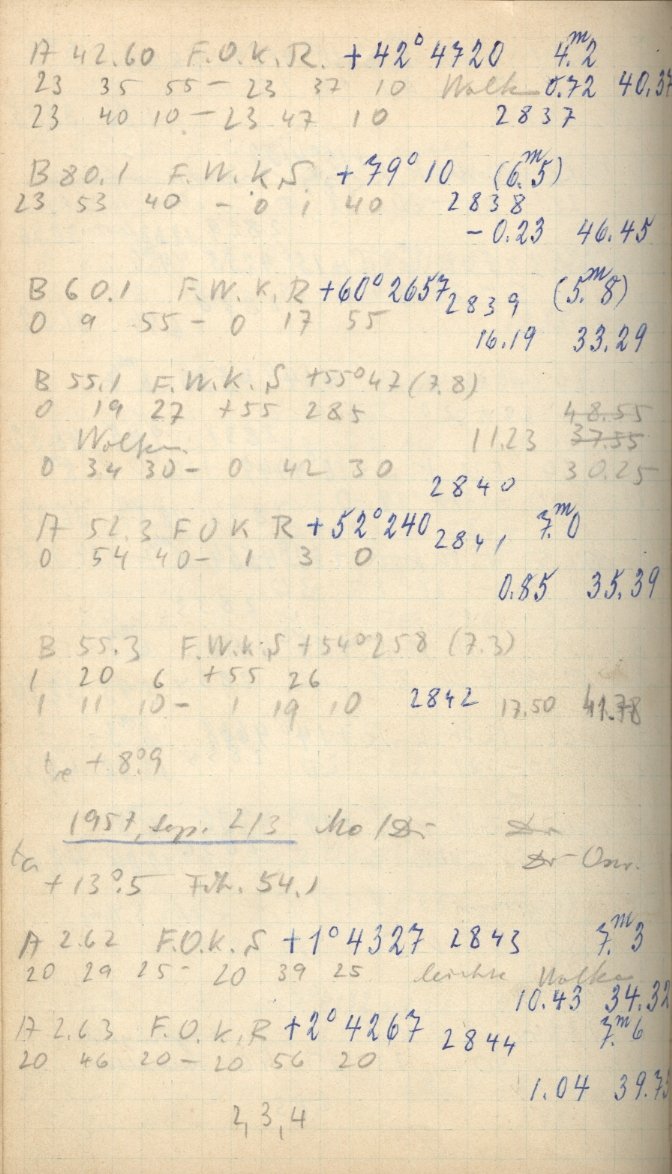 A 42.60 F.O.K.R. +42° 4720 4.ᵐ2
23 35 55 – 23 37 10 Wolken 0.72 40.37
23 40 10 – 23 47 10 2837
B 80.1 F.W.K.S. +79° 10 (6.ᵐ5)
23 53 40 – 0 1 40 2838
– 0.23 46.45
B 60.1 F.W.K.R +60° 2657 2839 (5.ᵐ8)
0 9 55 – 0 17 55
16.19 33.29
B 55.1 F.W.K.S +55° 47 (7.8)
0 19 27 +55 285 48.55
Wolken 11.23 37.35
0 34 30 – 0 42 30 30.25
2840
A 52.3 F O K R +52° 240 2841 7.ᵐ0
0 54 40 – 1 3 0
0.85 35.39
B 55.3 F.W.K.S +54° 258 (7.3)
1 20 6 +55 26
1 11 10 – 1 19 10 2842 17.50 41.78
tₑ + 8.°9
1957, Sep. 2/3 Mo/Di Dr
ta Dr
+ 13.°5 54.1
A 2.62 F.O.K.S +1° 4327 2843 7.ᵐ3
20 29 25 – 20 39 25 leichte Wolken
10.43 34.32
A 2.63 F.O.K.R +2° 4267 2844 7.ᵐ6
20 46 20 – 20 56 20
1.04
2,3,4